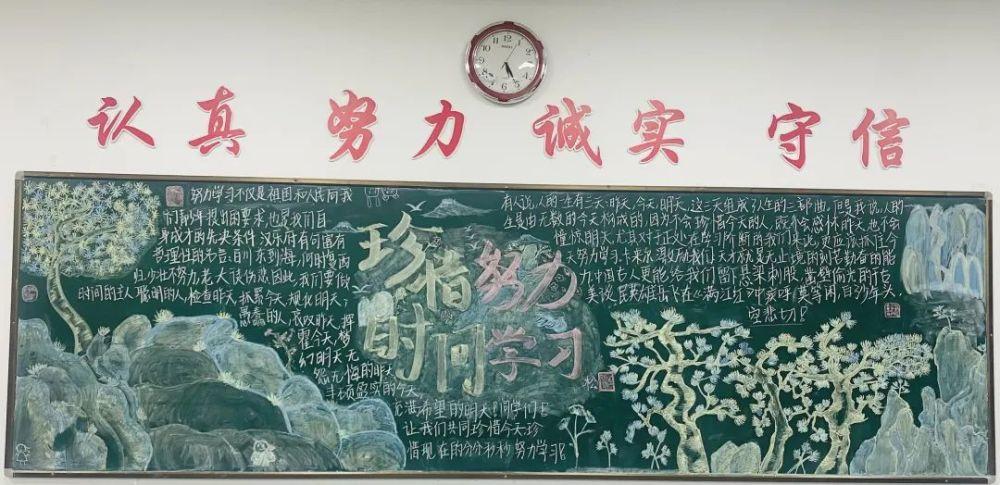 认真 努力 诚实 守信
努力学习不仅是祖国和人民向我
们青少年提出的要求,也是我们自
身成才的先决条件,汉乐府有句富有
哲理性的名言:百川东到海,何时复西
归,少壮不努力老大徒伤悲因此,我们要做
时间的主人 聪明的人,检查昨天 抓紧今天 规化明天;
愚蠢的人,哀叹昨天 挥
霍今天,梦
幻明天,无
怨无悔的昨天
丰硕盈实的今天
充满希望的明天 同学们
让我们共同珍惜今天珍
惜现在的分分秒秒努力学习!
珍惜
时间
努力
学习
松
有人说,人的一生有三天:昨天,今天,明天,这三天组成了人生的三部曲,但是我说,人的一
生是由无数的今天构成的,因为不会珍惜今天的人,既不会感怀昨天也不会
憧憬明天,尤其对于正处在学习阶段的我们来说,更应该抓住今
天努力学习,卡来尔
中国古人更能给我们留下悬梁刺股,凿壁偷光的千古
美谈 民族英雄岳飞在《满江红》中疾呼:莫等闲,白了少年头,
空悲切!